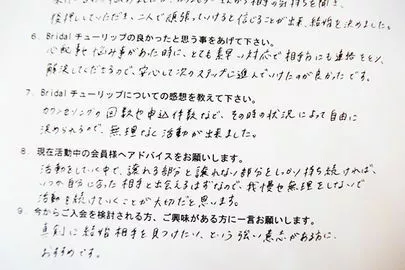 後押ししていただき、二人で頑張っていけると信じることが出来、結婚を決めました。
6、Bridal チューリップの良かったと思う事をあげて下さい。
心配事や悩み事があった時に、とても素早い対応で相手方にも連絡をとり、
解決してくださるので、安心して次のステップに進んでいけたのが良かったです。
7、Bridal チューリップについての感想を教えて下さい。
カウンセリングの回数や申込件数など、その時の状況によって自由に
決められるので、無理なく活動が出来ました。
8、現在活動中の会員様へアドバイスをお願いします。
活動をしていく中で、譲れる部分と譲れない部分をしっかり持ち続ければ、
いつか自分に合った相手と出会えるはずなので、我慢や無理をしないで
活動を続けていくことが大切だと思います。
9、今からご入会を検討される方、ご興味がある方に一言お願いします。
真剣に結婚相手を見つけたい、という強い意志がある方に、
おすすめです。